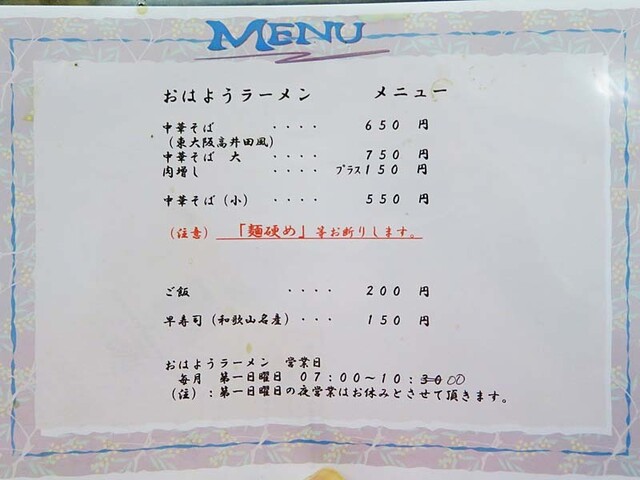 MENU
おはようラーメン メニュー
中華そば ・・・・ 650 円
(東大阪高井田風)
中華そば 大 ・・・・ 750 円
肉増し ・・・・ プラス150 円
中華そば(小) ・・・・ 550 円
(注意) 「麺硬め」等お断りします。
ご飯 ・・・・ 200 円
早寿司(和歌山名産)・・・ 150 円
おはようラーメン 営業日
毎月 第一日曜日 07:00~10:3000
(注):第一日曜日の夜営業はお休みとさせて頂きます。